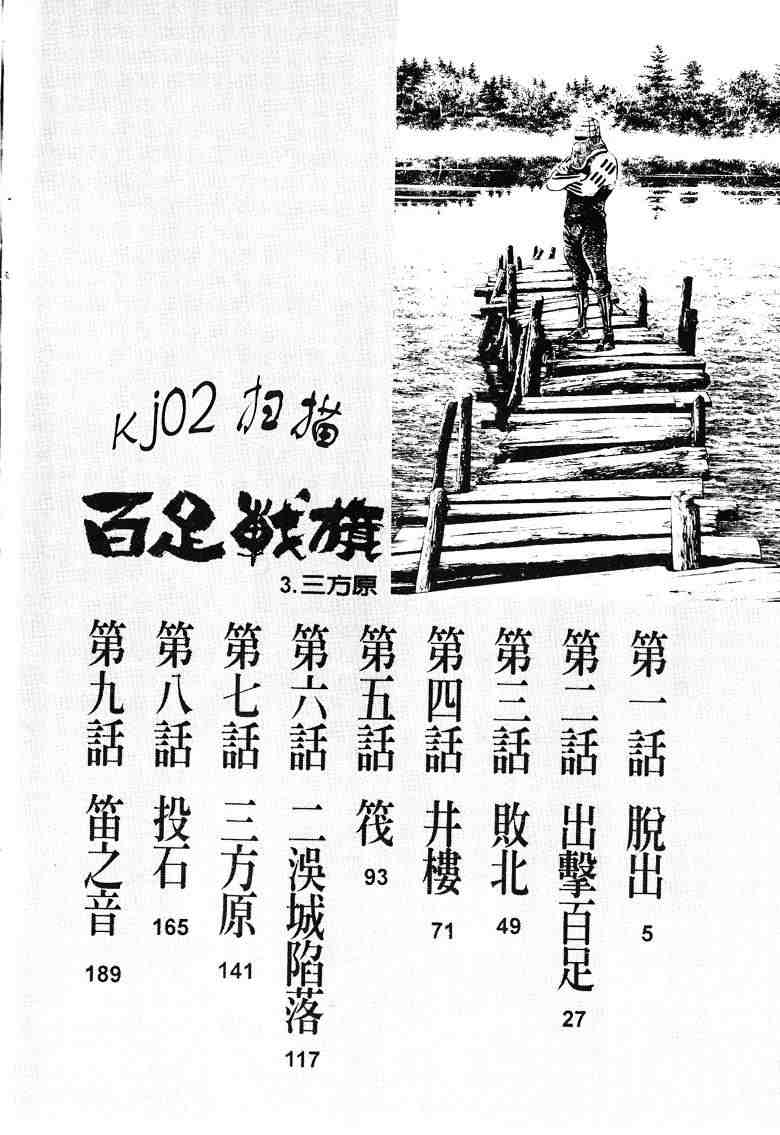 kj02 扫描
百足戦旗
3.三方原
第一話 脫出 5
第二話 出擊百足 27
第三話 敗北 49
第四話 井樓 71
第五話 筏 93
第六話 二俣城陷落 117
第七話 三方原 141
第八話 投石 165
第九話 笛之音 189